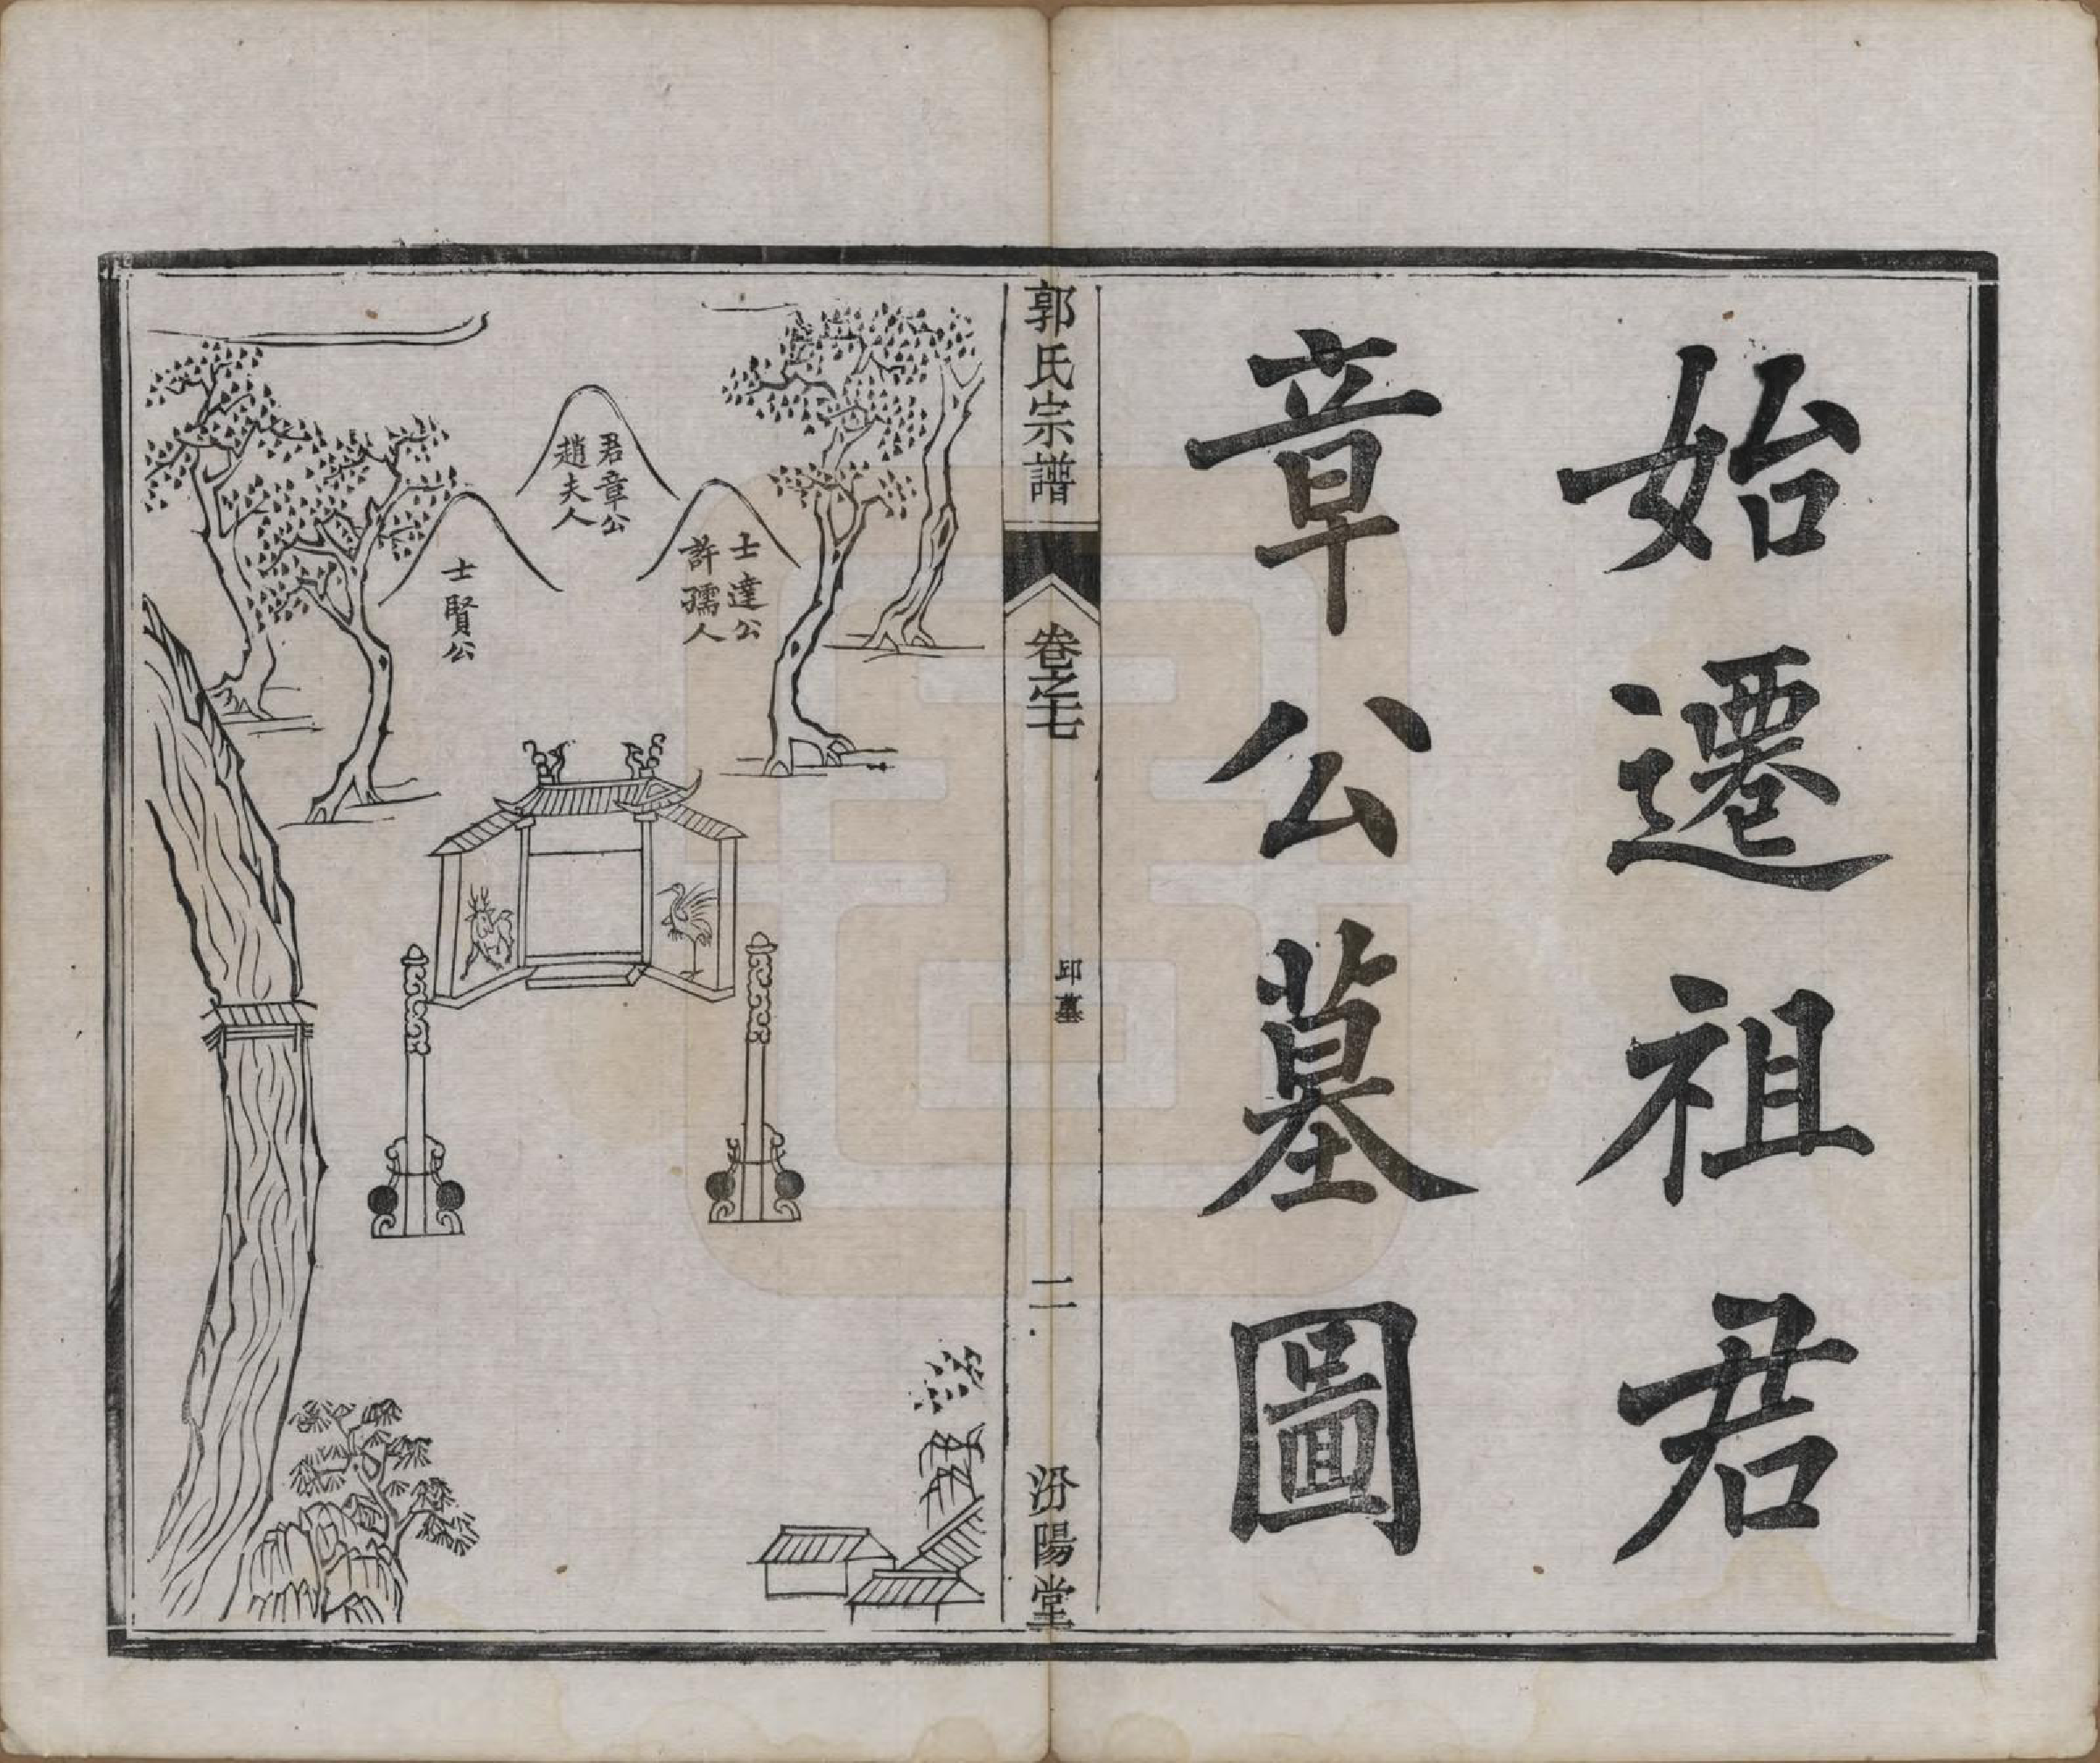 始遷祖君
章公墓圖
郭氏宗譜
卷之七
邱墓
二
汾陽堂
士達公
許孺人
君章公
趙夫人
士賢公